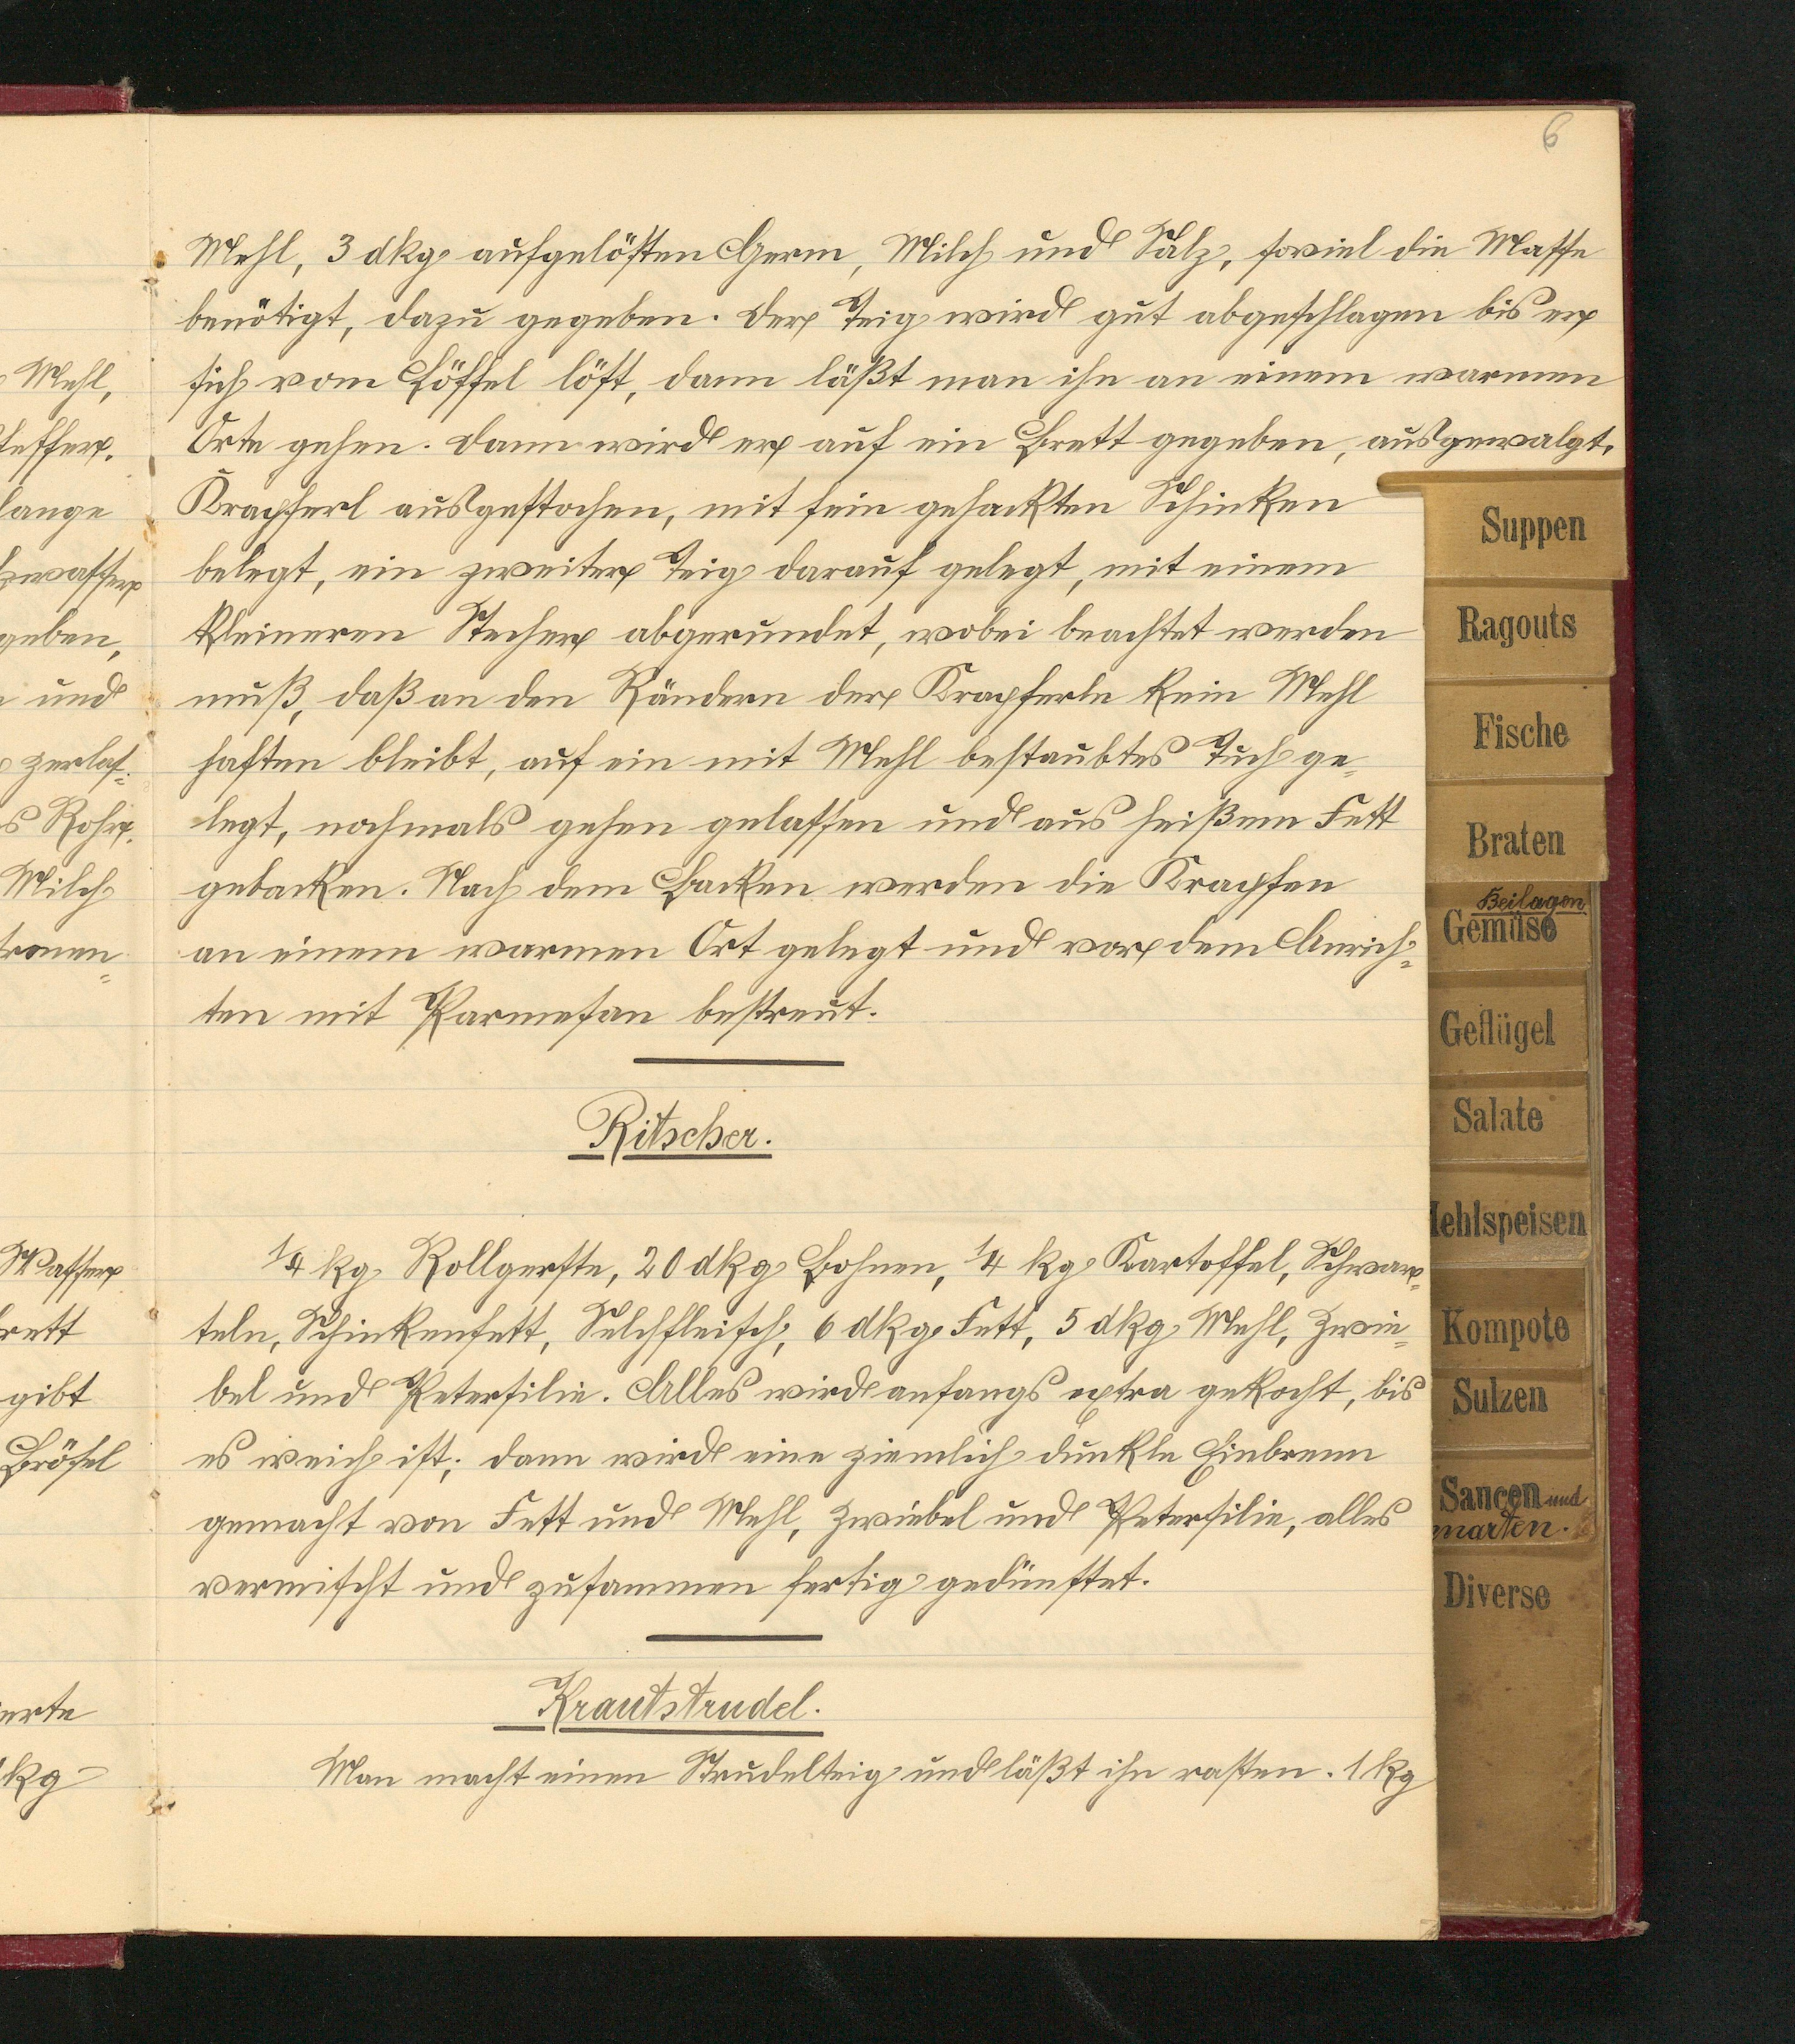 6
Mehl,
lange
geben,
und
zerlas-
Rohr.
Milch
Wasser
gibt
Brösel
kg
Mehl, 3 dkg aufgelösten Germ, Milch und Salz, soviel die Masse
benötigt, dazu gegeben. Der Teig wird gut abgeschlagen bis er
sich vom Löffel löst, dann läßt man ihn an einem warmen
Orte gehen. Dann wird er auf ein Brett gegeben, ausgewalgt,
Krapferl ausgestochen, mit fein gehackten Schinken
belegt, ein zweiter Teig darauf gelegt, mit einem
kleineren Stecher abgerundet, wobei beachtet werden
muß, daß an den Rändern der Krapferln kein Mehl
haften bleibt, auf ein mit Mehl bestaubtes Tuch ge-
legt, nochmals gehen gelassen und aus heißem Fett
gebacken. Nach dem Backen werden die Krapfen
an einem warmen Ort gelegt und vor dem Anrich-
ten mit Parmesan bestreut.
Ritscher.
1/4 kg Rollgerste, 20 dkg Bohnen, 1/4 kg Kartoffel, Schwar-
teln, Schinkenfett, Selchfleisch, 6 dkg Fett, 5 dkg Mehl, Zwie-
bel und Petersilie. Alles wird anfangs extra gekocht, bis
es weich ist; dann wird eine ziemlich dunkle Einbrenn
gemacht von Fett und Mehl, Zwiebel und Petersilie, alles
vermischt und zusammen fertig gedünstet.
Krautstrudel.
Man macht einen Strudelteig und läßt ihn rasten. 1 kg
Suppen
Ragouts
Fische
Braten
Beilagen
Gemüse
Geflügel
Salate
Mehlspeisen
Kompote
Sulzen
Saucen und
marten.
Diverse